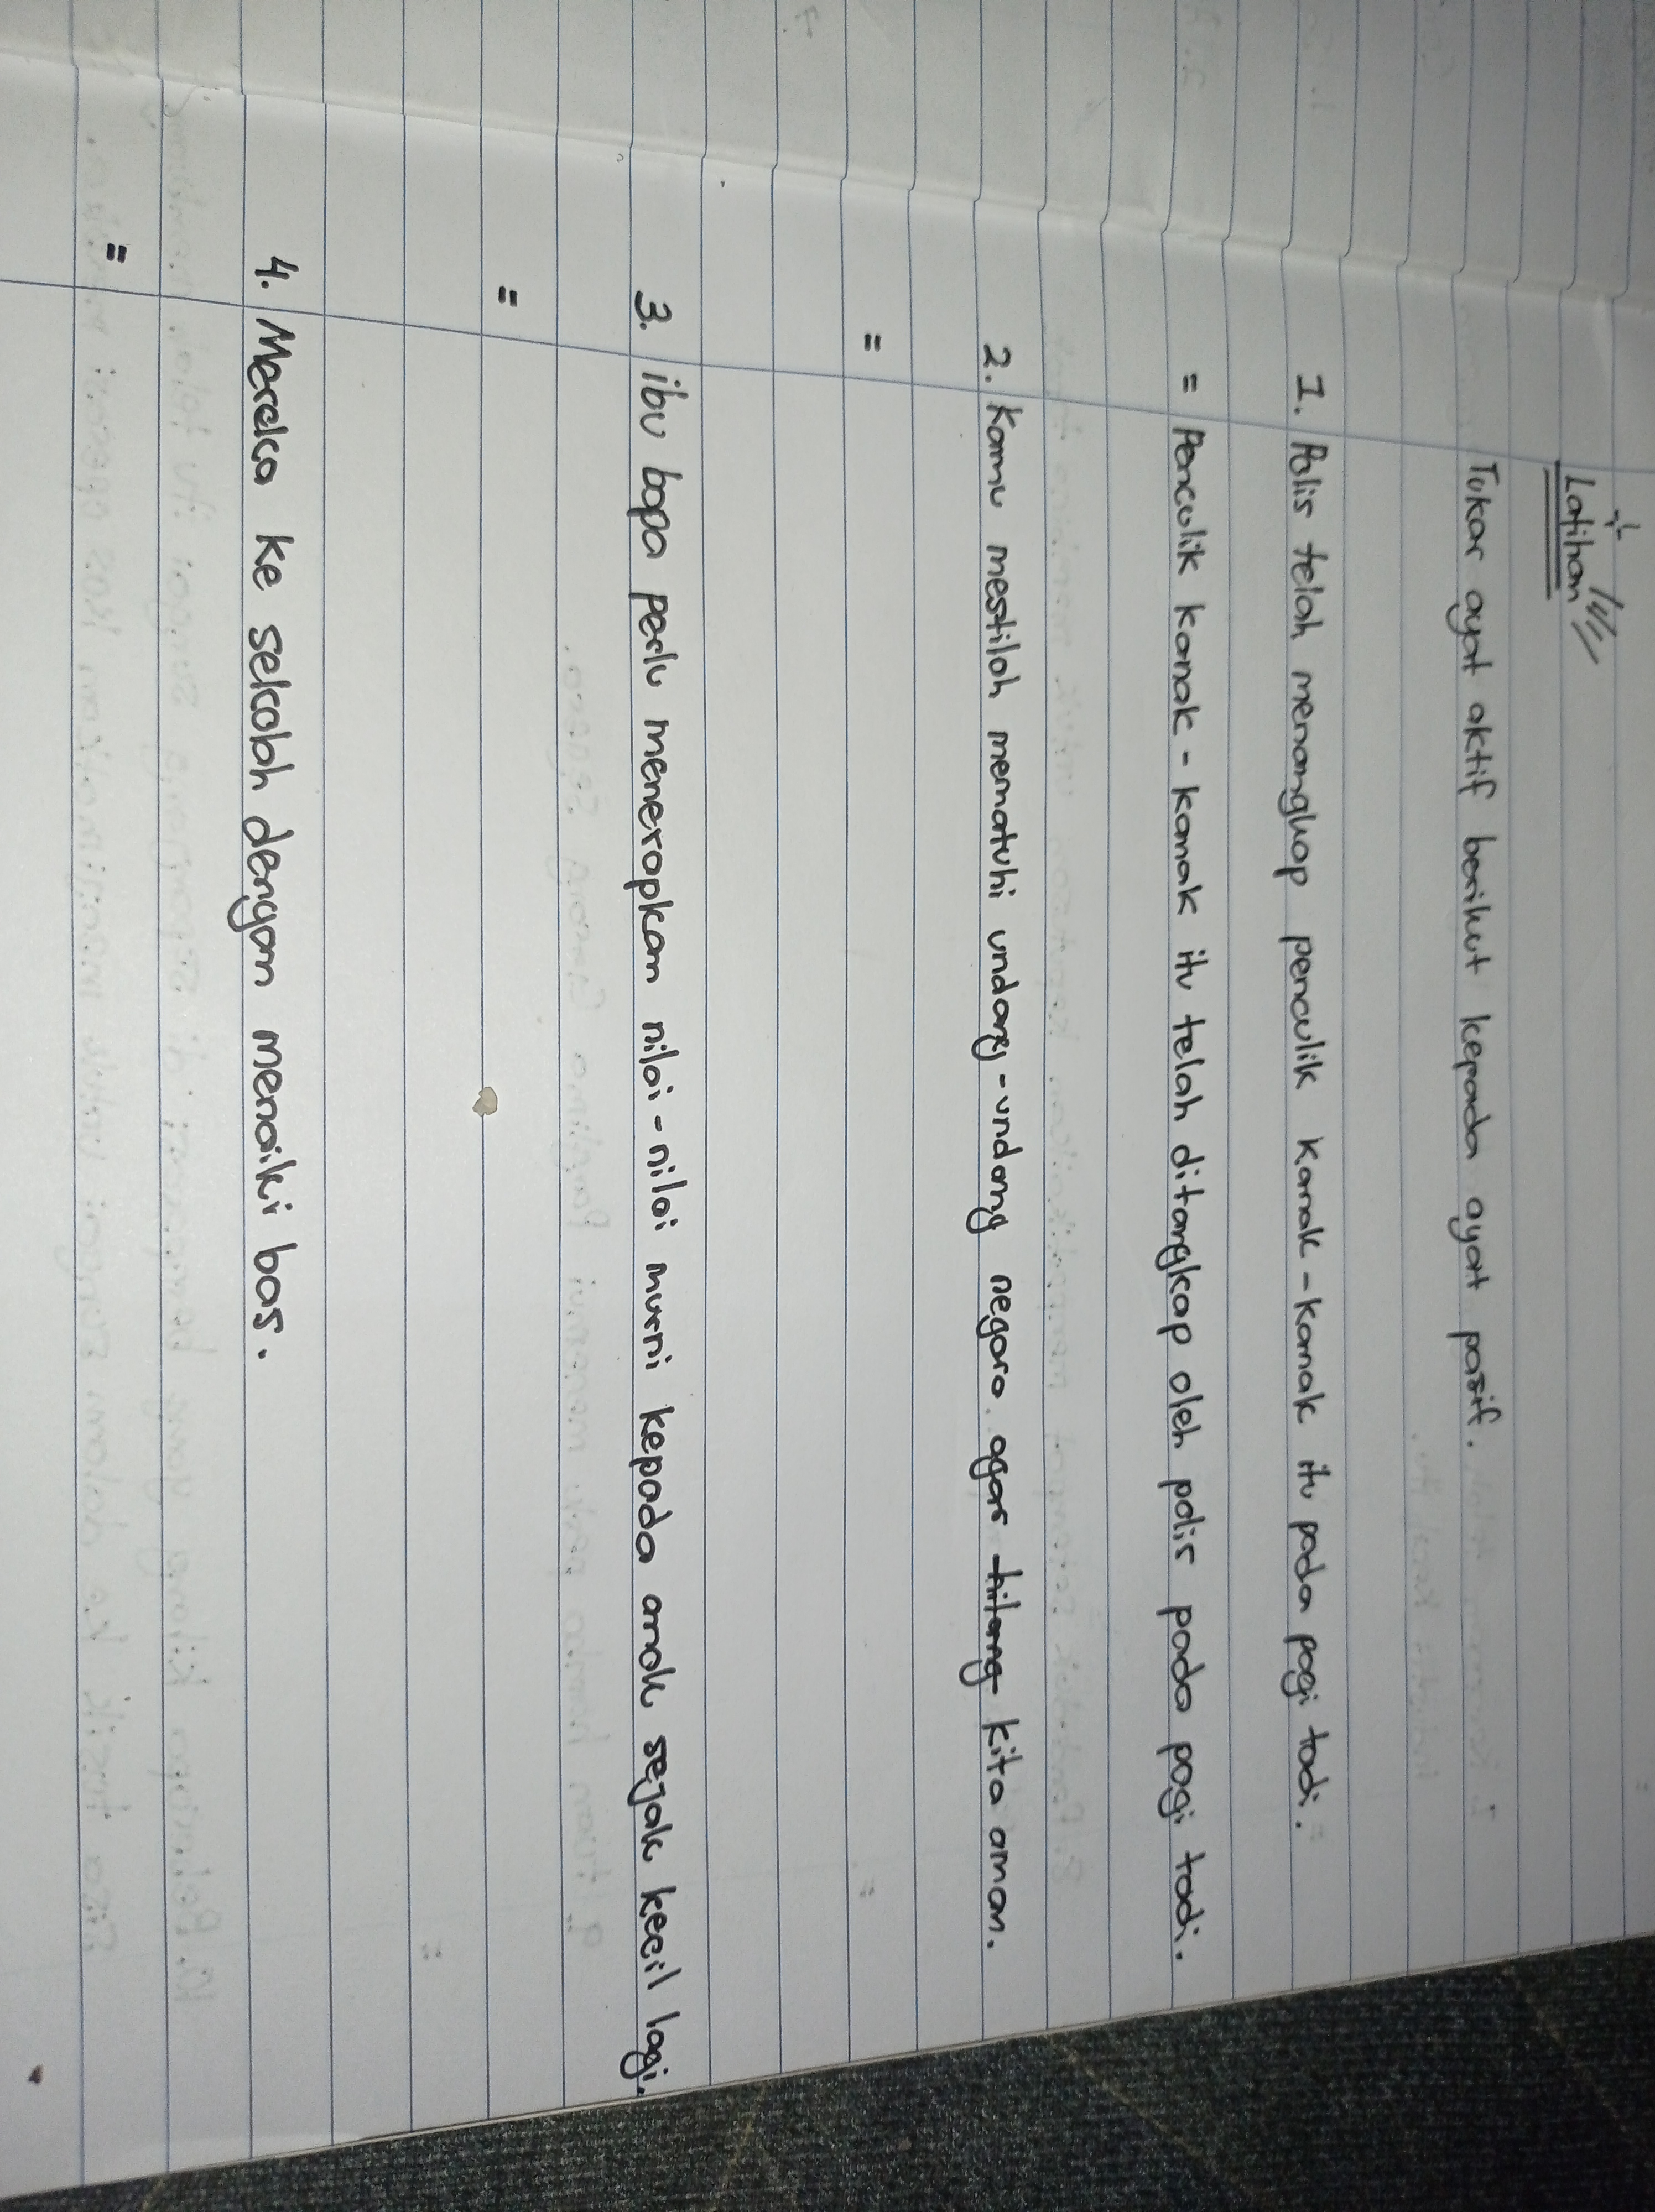 Latihan
Tukar ayat aktif berikut kepada ayat pasif.
1. Polis telah menangkap penculik kanak-kanak itu pada pagi tadi.
= Penculik kanak-kanak itu telah ditangkap oleh polis pada pagi tadi.
2. Kamu mestilah mematuhi undang-undang negara agar hitang kita aman.
=
3. ibu bapa perlu menerapkan nilai-nilai murni kepada anak sejak kecil lagi.
=
4. Mereka ke sekolah dengan menaiki bas.
=